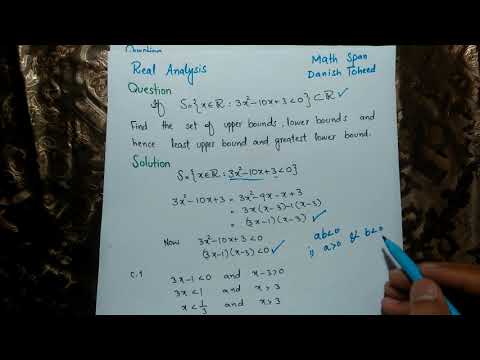 Question
Real Analysis
Math Span
Danish Toheed
Question
If S={x∈ℝ: 3x²-10x+3<0}⊂ℝ ✓
Find the set of upper bounds, lower bounds and
hence least upper bound and greatest lower bound.
Solution
S={x∈ℝ: 3x²-10x+3<0}
3x²-10x+3 = 3x²-9x-x+3
= 3x(x-3)-1(x-3)
= (3x-1)(x-3) ✓
Now 3x²-10x+3<0
(3x-1)(x-3)<0 ✓
ab<0
i) a>0 & b<0
C.1 3x-1<0 and x-3>0
3x<1 and x>3
x<1/3 and x>3